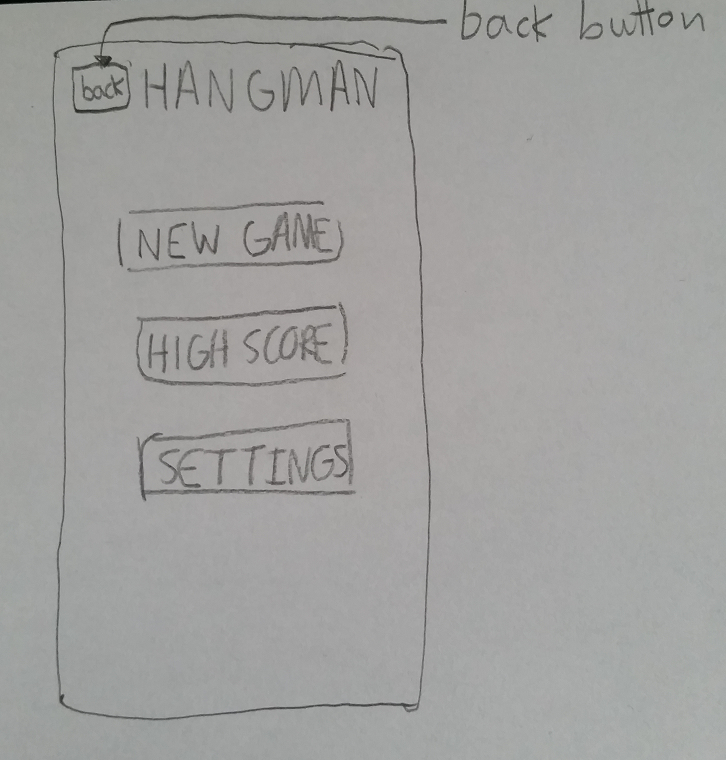 back button
back HANGMAN
NEW GAME
HIGH SCORE
SETTINGS